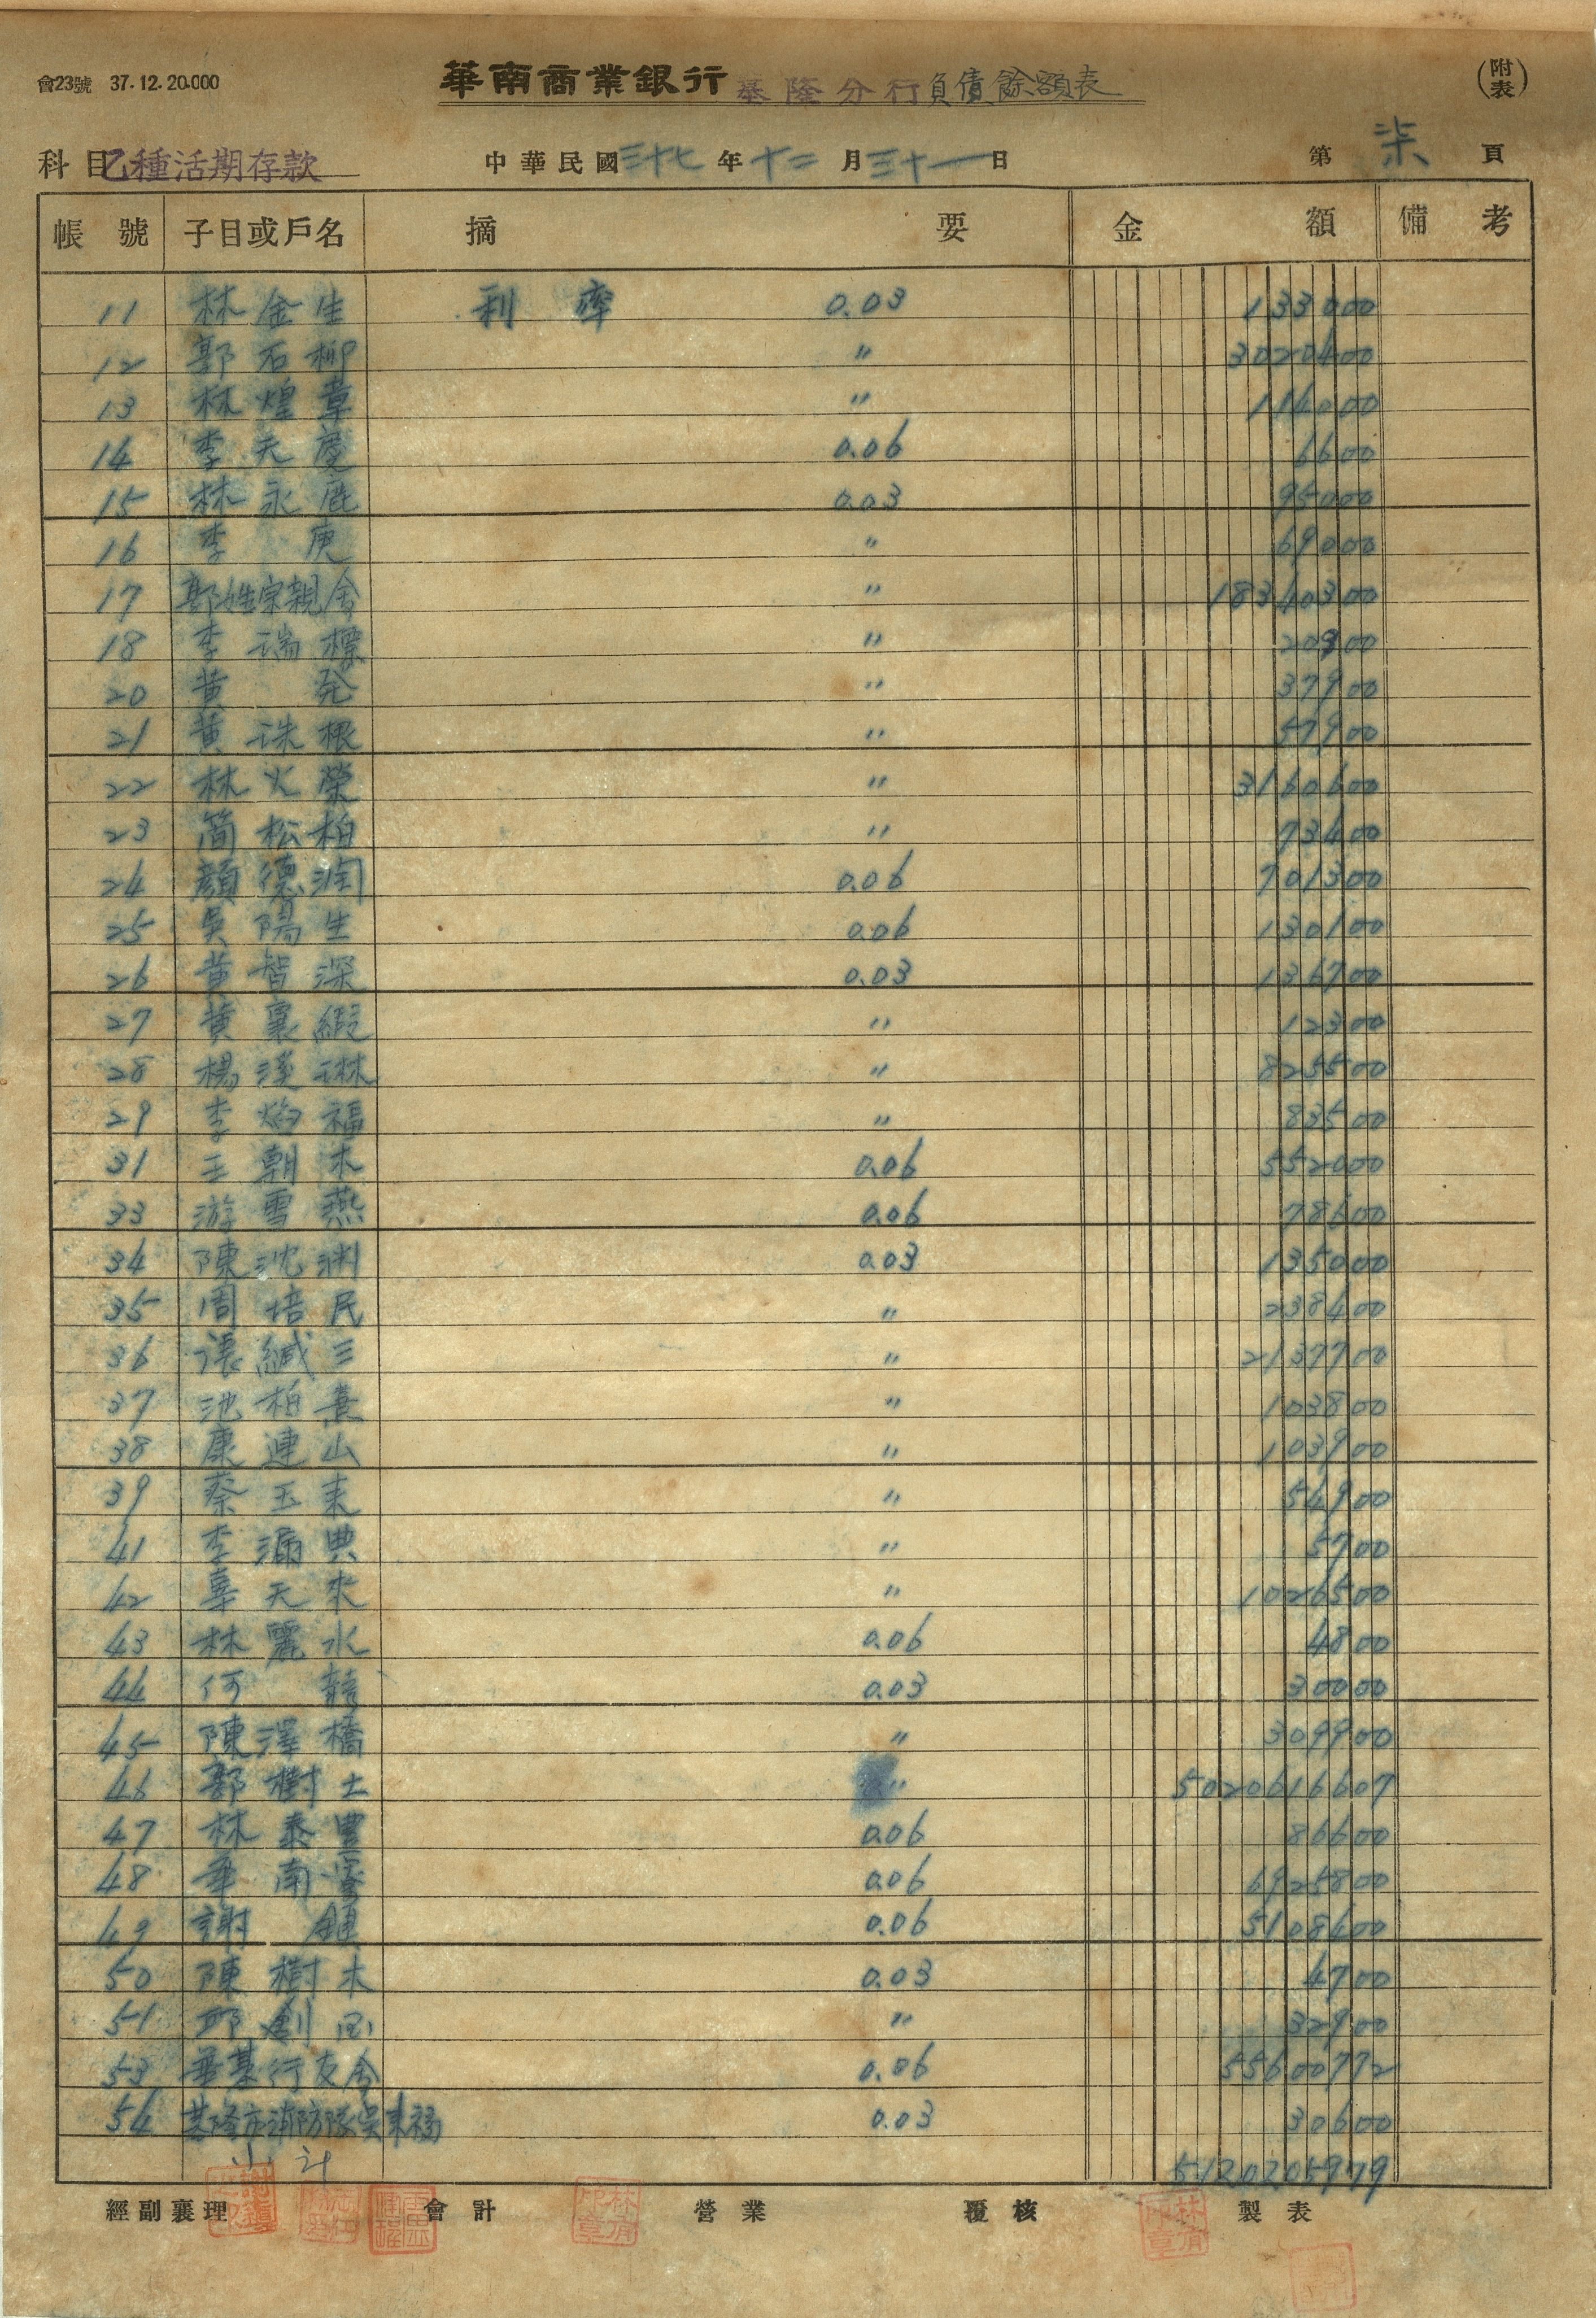 會23號 37.12.20.000
華南商業銀行基隆分行負債餘額表
(附表)
科目乙種活期存款 中華民國三十七年十二月三十一日 第柒頁
帳號 子目或戶名 摘要 金額 備考
11 林金生 利率 0.03 133000
12 郭石柳 〃 3020400
13 林煌章 〃 114000
14 李天慶 0.06 6600
15 林永 0.03 95000
16 李庚 〃 69000
17 郭姓宗親會 〃 18340300
18 李瑞標 〃 20900
20 黃発 〃 37900
21 黃珠根 〃 57900
22 林火榮 〃 3160600
23 简松柏 〃 93400
24 顏德润 0.06 701300
25 吳陽生 0.06 130100
26 黃智深 0.03 136700
27 黃襄緞 〃 12300
28 楊溪琳 〃 825500
29 李焰福 〃 83500
31 王朝木 0.06 552000
33 游雪燕 0.06 78600
34 陳沈渊 0.03 135000
35 周培民 〃 238400
36 張緘三 〃 2137700
37 池柏熹 〃 103800
38 康連山 〃 103900
39 蔡玉来 〃 54900
41 李漏興 〃 5700
42 辜天来 〃 1026500
43 林麗水 0.06 4800
44 何 0.03 30000
45 陳澤橋 〃 309900
46 郭樹土 〃 5020616607
47 林泰豊 0.06 86600
48 華南寮 0.06 6925800
49 謝鎮 0.06 5108600
50 陳樹木 0.03 4700
51 邱創 〃 32900
53 華基行友會 0.06 55600772
54 基隆市消防隊吳来福 0.03 30600
小計 5120205979
經副襄理 會計 營業 覆核 製表